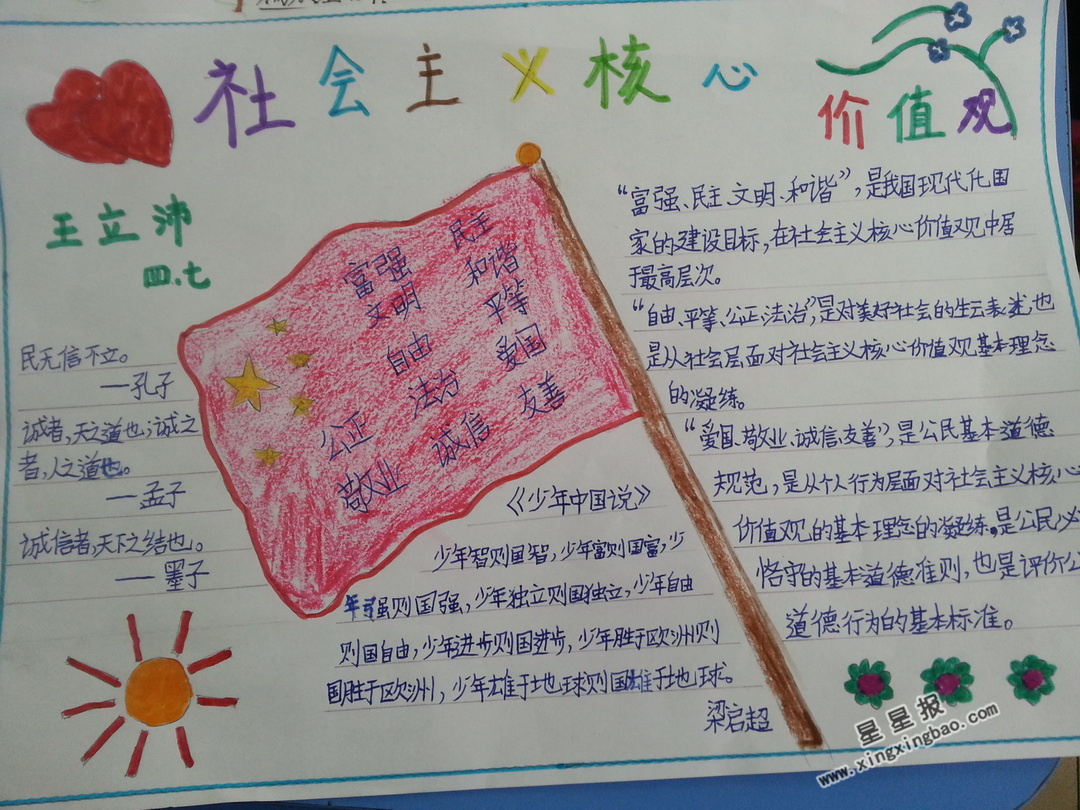 社会主义核心
价值观
王立沛
四.七
富强 民主
文明 和谐
自由 平等
公正 法治 爱国
敬业 诚信 友善
民无信不立。
——孔子
诚者,天之道也;诚之
者,人之道也。
——孟子
诚信者,天下之结也。
——墨子
《少年中国说》
少年智则国智,少年富则国富,少
年强则国强,少年独立则国独立,少年自由
则国自由,少年进步则国进步,少年胜于欧洲则
国胜于欧洲,少年雄于地球则国雄于地球。
梁启超
“富强、民主、文明、和谐”,是我国现代化国
家的建设目标,在社会主义核心价值观中居
于最高层次。
“自由、平等、公正、法治”,是对美好社会的生云表述,也
是从社会层面对社会主义核心价值观基本理念
的凝练。
“爱国、敬业、诚信、友善”,是公民基本道德
规范,是从个人行为层面对社会主义核心
价值观的基本理念的凝练。是公民必
恪守的基本道德准则,也是评价公
道德行为的基本标准。
星星报
www.xingxingbao.com